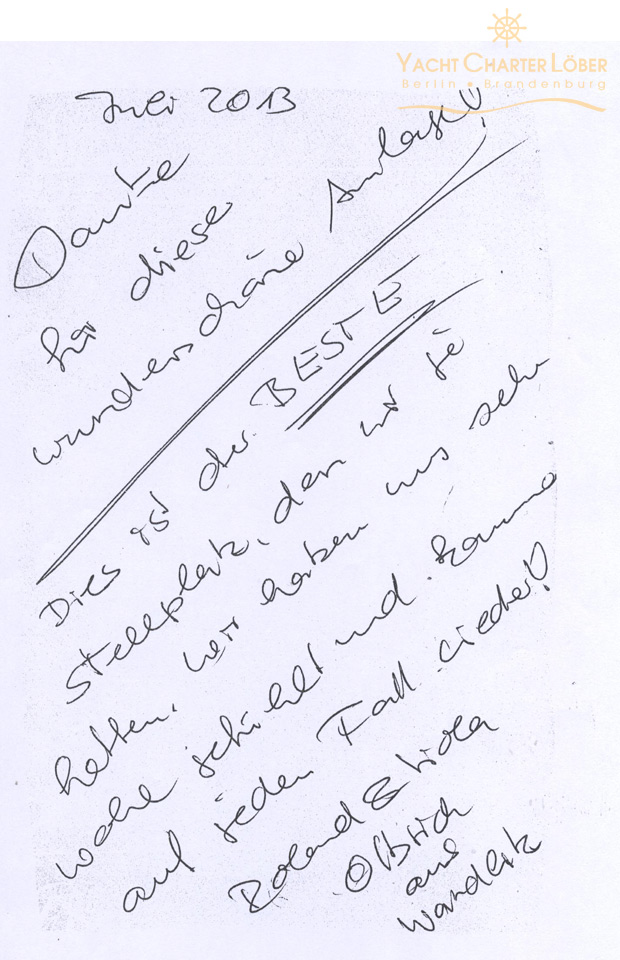 YACHT CHARTER LÖBER
Berlin • Brandenburg
Juli 2013
Danke
für diese
wunderschöne Anlage!!
Dies ist der BESTE
Stellplatz, den wir je
hatten. Wir haben uns sehr
wohl gefühlt und kommen
auf jeden Fall wieder!!
Roland & Viola
Olbrich
aus
Wandlitz